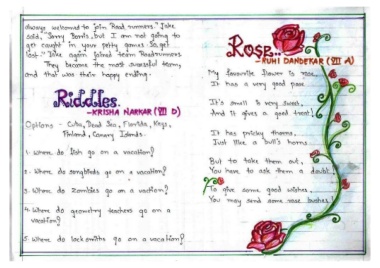 always welcomed to join Road runners" Jake
said, "Sorry Boris, but I am not going to
get caught in your petty games. So, get
lost." Jake again joined team Roadrunners
They became the most successful team,
and that was their happy ending.
Riddles.
-KRISHA NARKAR (VIII D)
Options - Cuba, Dead Sea, Florida, Keys,
Finland, Canary Islands.
1. Where do fish go on a vacation?
2. Where do songbirds go on a vacation?
3. Where do zombies go on a vaction?
4. Where do geometry teachers go on a
vacation?
5. Where do locksmiths go on a vacation?
Rose.
-RUHI DANDEKAR (VIII A)
My favourite flower is rose,
It has a very good pose.
It's smell is very sweet,
And it gives a good treat.
It has prickly thorns,
Just like a bull's horns.
But to take them out,
You have to ask them a doubt.
To give some good wishes,
You may send some rose bushes!